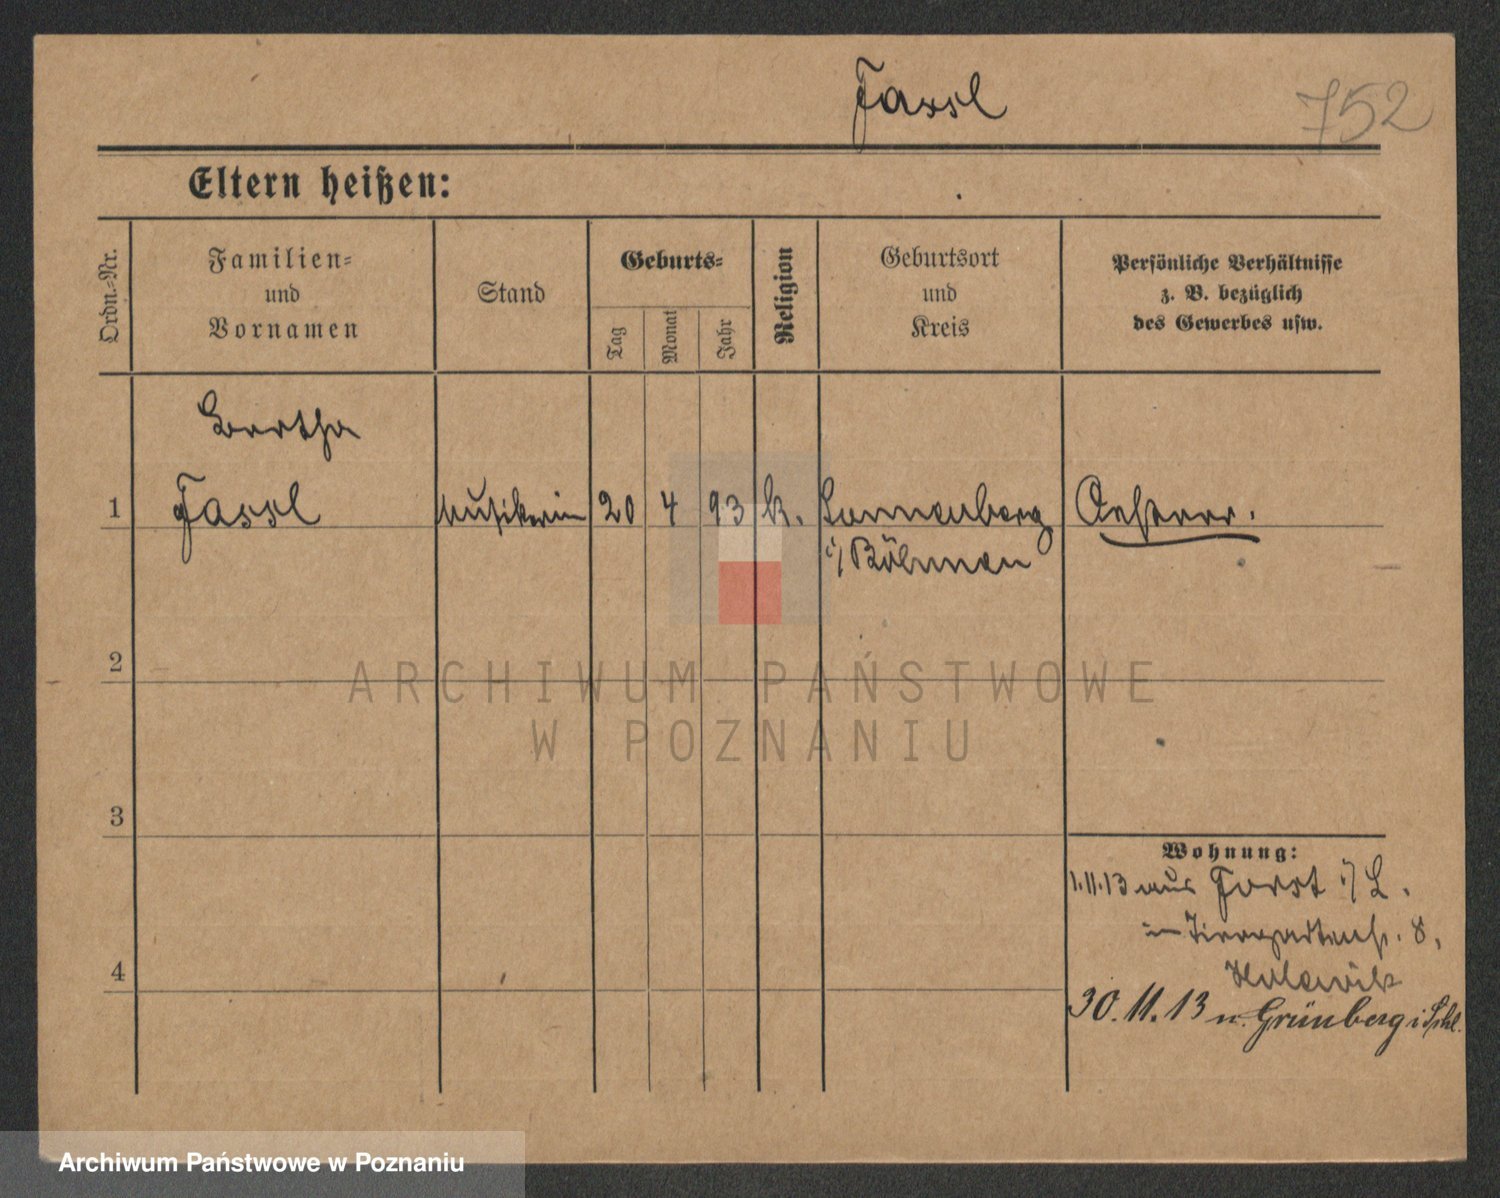 Fassl
752
Eltern heißen:
Ordn.-Nr.
Familien-
und
Vornamen
Stand
Geburts-
Tag
Monat
Jahr
Religion
Geburtsort
und
Kreis
Persönliche Verhältnisse
z. B. bezüglich
des Gewerbes usw.
Bertha
1 Fassl Musikerin 20 4 93 k. Sonnenberg Oesterr.
i/Böhmen
2
ARCHIWUM PAŃSTWOWE
W POZNANIU
3
Wohnung:
1.11.13 aus Forst i/L.
Tiergartenstr. 8,
4
30.11.13 n. Grünberg i Schl.
Archiwum Państwowe w Poznaniu